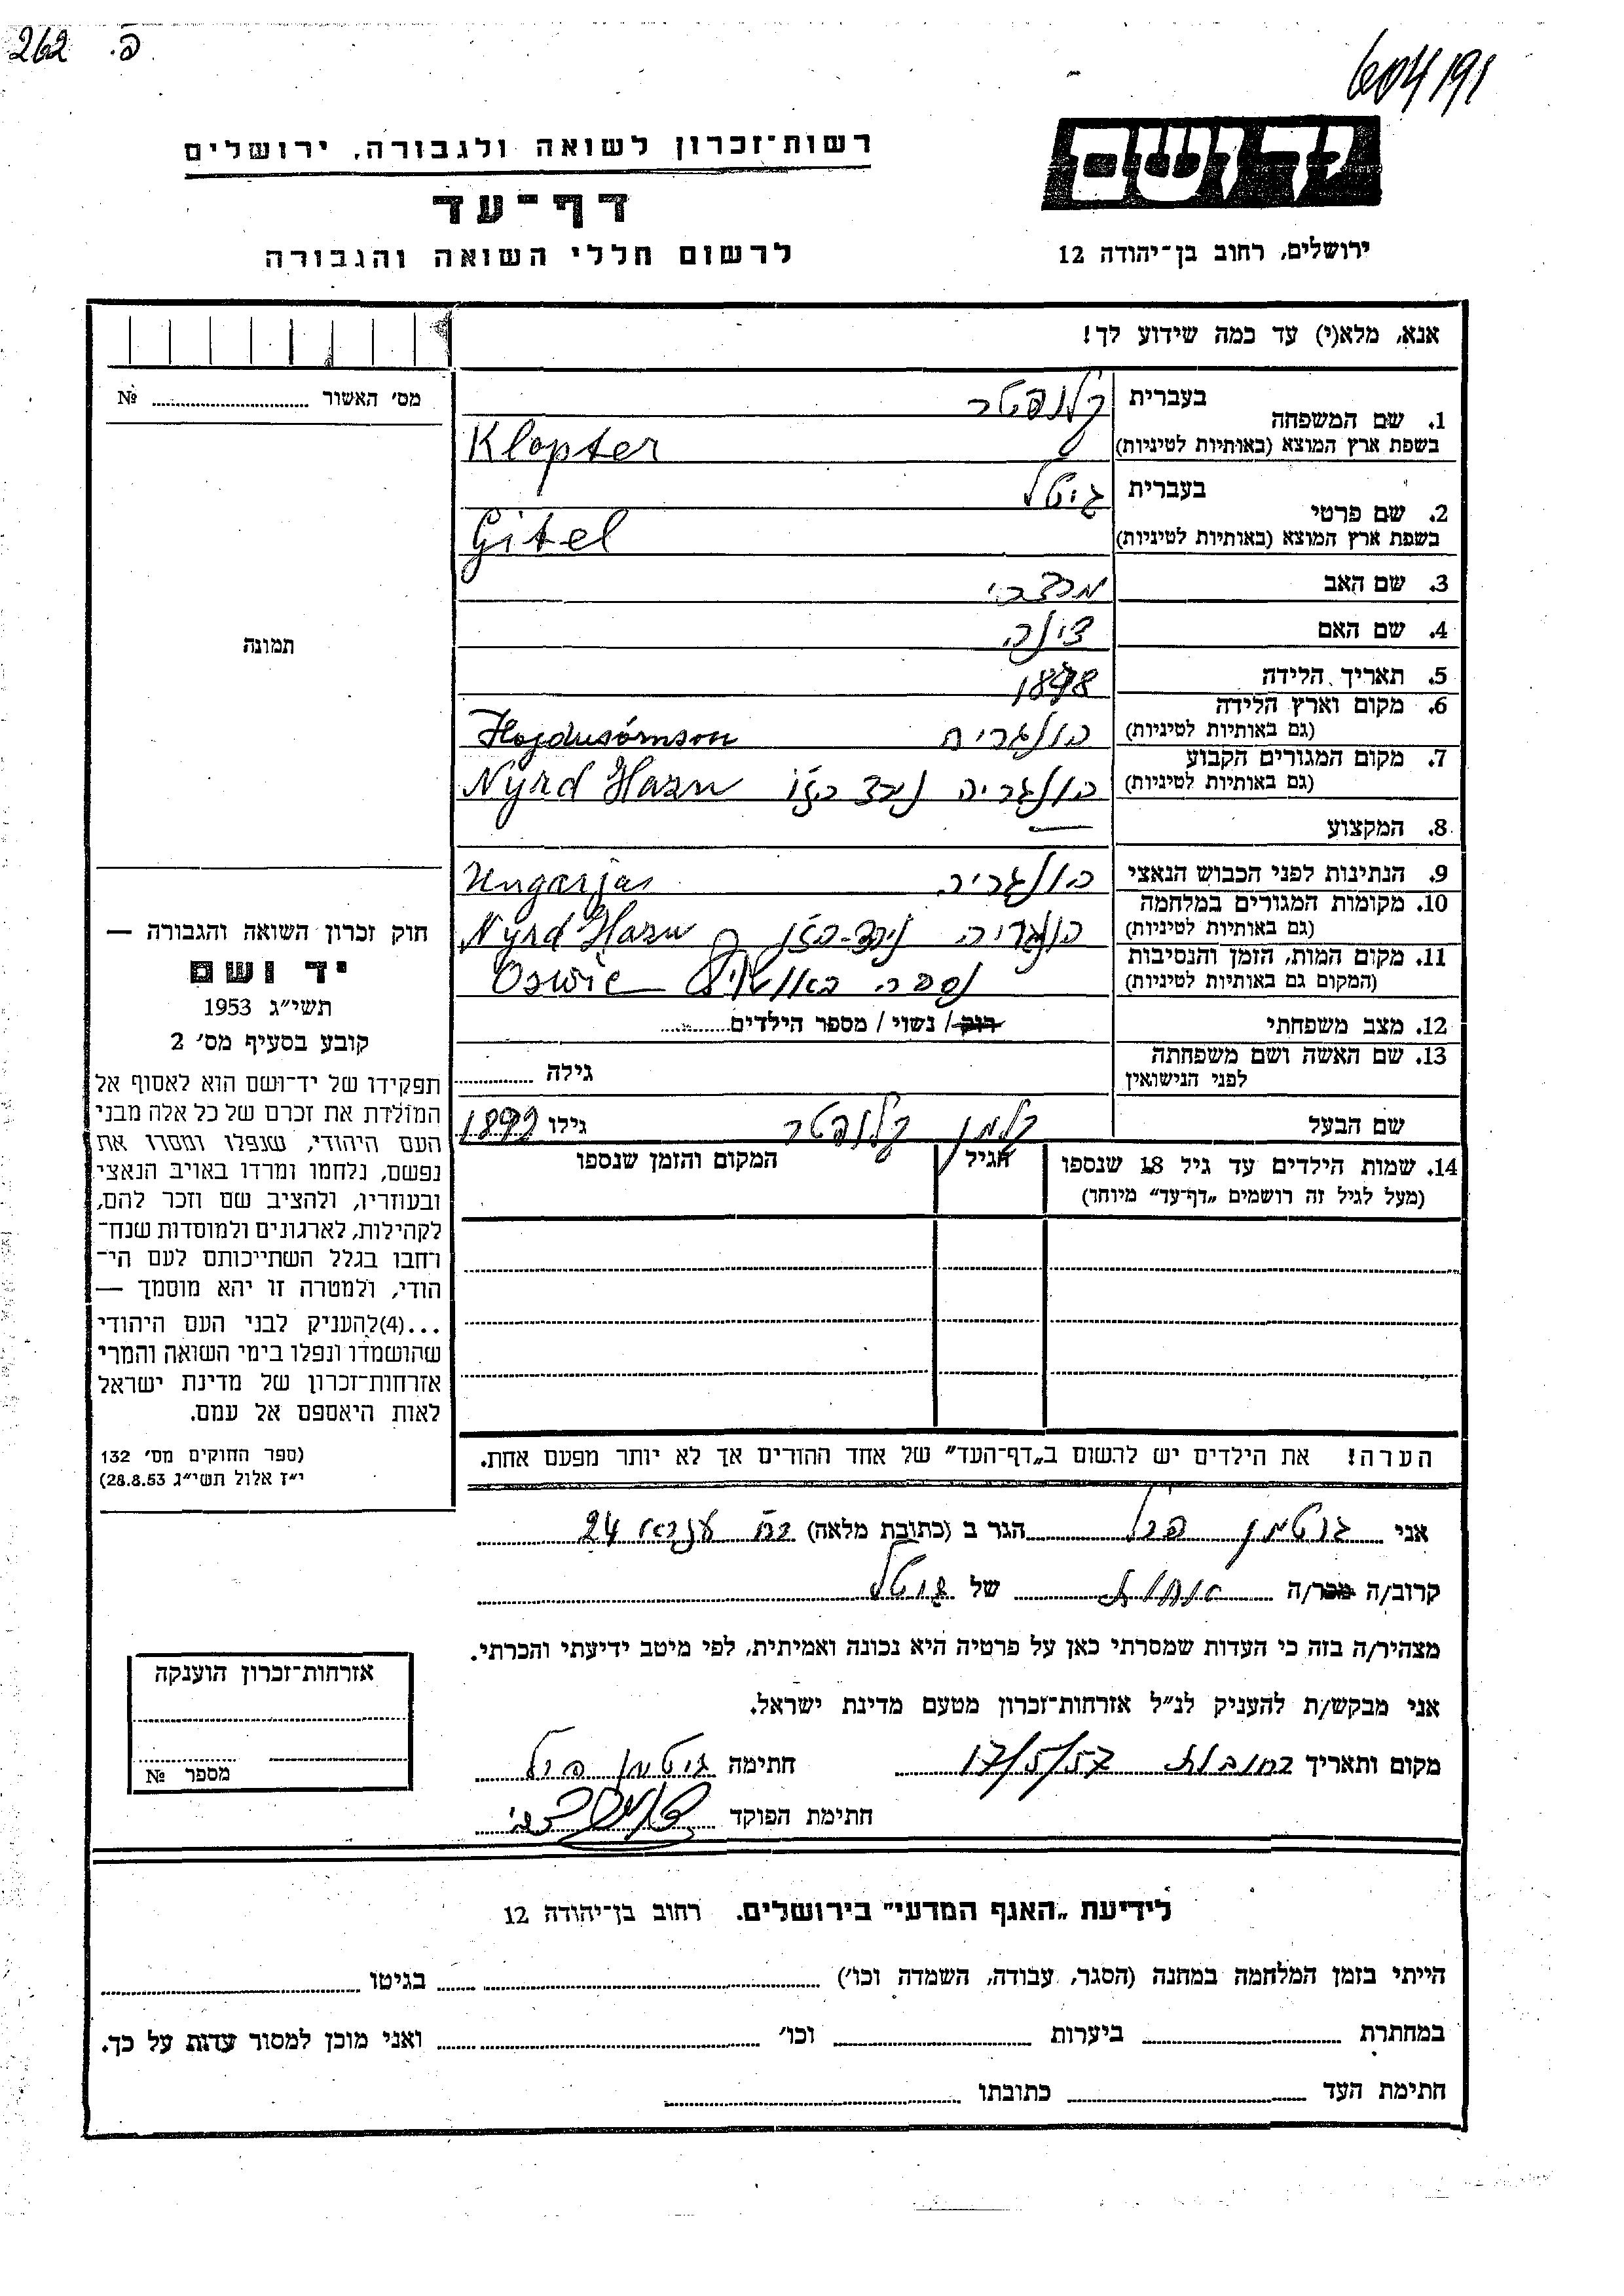 262 פ.
604/191
רשות־זכרון לשואה ולגבורה, ירושלים
יד ושם
דף־עד
לרשום חללי השואה והגבורה
ירושלים, רחוב בן־יהודה 12
אנא, מלא(י) עד כמה שידוע לך!
מס' האשור № 
תמונה
1. שם המשפחה בעברית קלופטר
בשפת ארץ המוצא (באותיות לטיניות) Klopter
2. שם פרטי בעברית גיטל
בשפת ארץ המוצא (באותיות לטיניות) Gitel
3. שם האב מרדכי
4. שם האם
5. תאריך הלידה 1898
6. מקום וארץ הלידה
(גם באותיות לטיניות) Hojdusómson
7. מקום המגורים הקבוע
(גם באותיות לטיניות) Nyrd Hazu
8. המקצוע —
9. הנתינות לפני הכבוש הנאצי Ungarjas
10. מקומות המגורים במלחמה
(גם באותיות לטיניות) Nyrd Hazu
11. מקום המות, הזמן והנסיבות
(המקום גם באותיות לטיניות) נספה באושויץ Oswie
12. מצב משפחתי רוק / נשוי / מספר הילדים
13. שם האשה ושם משפחתה
לפני הנישואין גילה
שם הבעל קלמן קלופטר גילו 1892
14. שמות הילדים עד גיל 18 שנספו הגיל המקום והזמן שנספו
(מעל לגיל זה רושמים „דף־עד" מיוחד)
חוק זכרון השואה והגבורה —
יד ושם
תשי״ג 1953
קובע בסעיף מס' 2
תפקידו של יד־ושם הוא לאסוף אל
המולדת את זכרם של כל אלה מבני
העם היהודי, שנפלו ומסרו את
נפשם, נלחמו ומרדו באויב הנאצי
ובעוזריו, ולהציב שם וזכר להם,
לקהילות, לארגונים ולמוסדות שנח־
רחבו בגלל השתייכותם לעם הי־
הודי, ולמטרה זו יהא מוסמך —
...(4)להעניק לבני העם היהודי
שהושמדו ונפלו בימי השואה והמרי
אזרחות־זכרון של מדינת ישראל
לאות היאספם אל עמם.
(ספר החוקים מס' 132
י״ז אלול תשי״ג 28.8.53)
הערה! את הילדים יש לרשום ב„דף־העד" של אחד ההורים אך לא יותר מפעם אחת.
אני גוטמן פרל הגר ב (כתובת מלאה) 24
קרוב/ה מכר/ה אחות של גיטל
מצהיר/ה בזה כי העדות שמסרתי כאן על פרטיה היא נכונה ואמיתית, לפי מיטב ידיעתי והכרתי.
אני מבקש/ת להעניק לנ״ל אזרחות־זכרון מטעם מדינת ישראל.
מקום ותאריך רחובות 17/5/57 חתימה גוטמן פרל
חתימת הפוקד
אזרחות־זכרון הוענקה
מספר №
לידיעת „האגף המדעי" בירושלים. רחוב בן־יהודה 12
הייתי בזמן המלחמה במחנה (הסגר, עבודה, השמדה וכו') בגיטו
במחתרת ביערות וכו' ואני מוכן למסור עדות על כך.
חתימת העד כתובתו